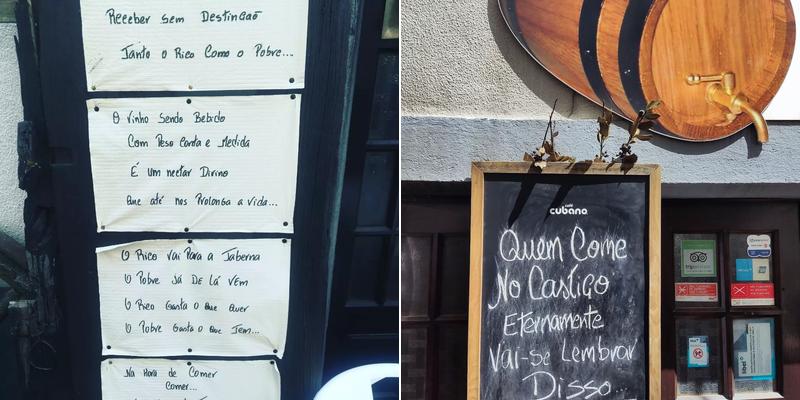 Receber sem Destinção
Tanto o Rico Como o Pobre...
O Vinho Sendo Bebido
Com Peso Conta e Medida
É um nectar Divino
Que até nos Prolonga a vida...
O Rico Vai Para a Taberna
O Pobre Já De Lá Vem
O Rico Gasta o Que Quer
O Pobre Gasta o Que Tem...
Na Hora de Comer
Comer...
café
cubano
Quem Come
No Castiço
Eternamente
Vai-se Lembrar
Disso...